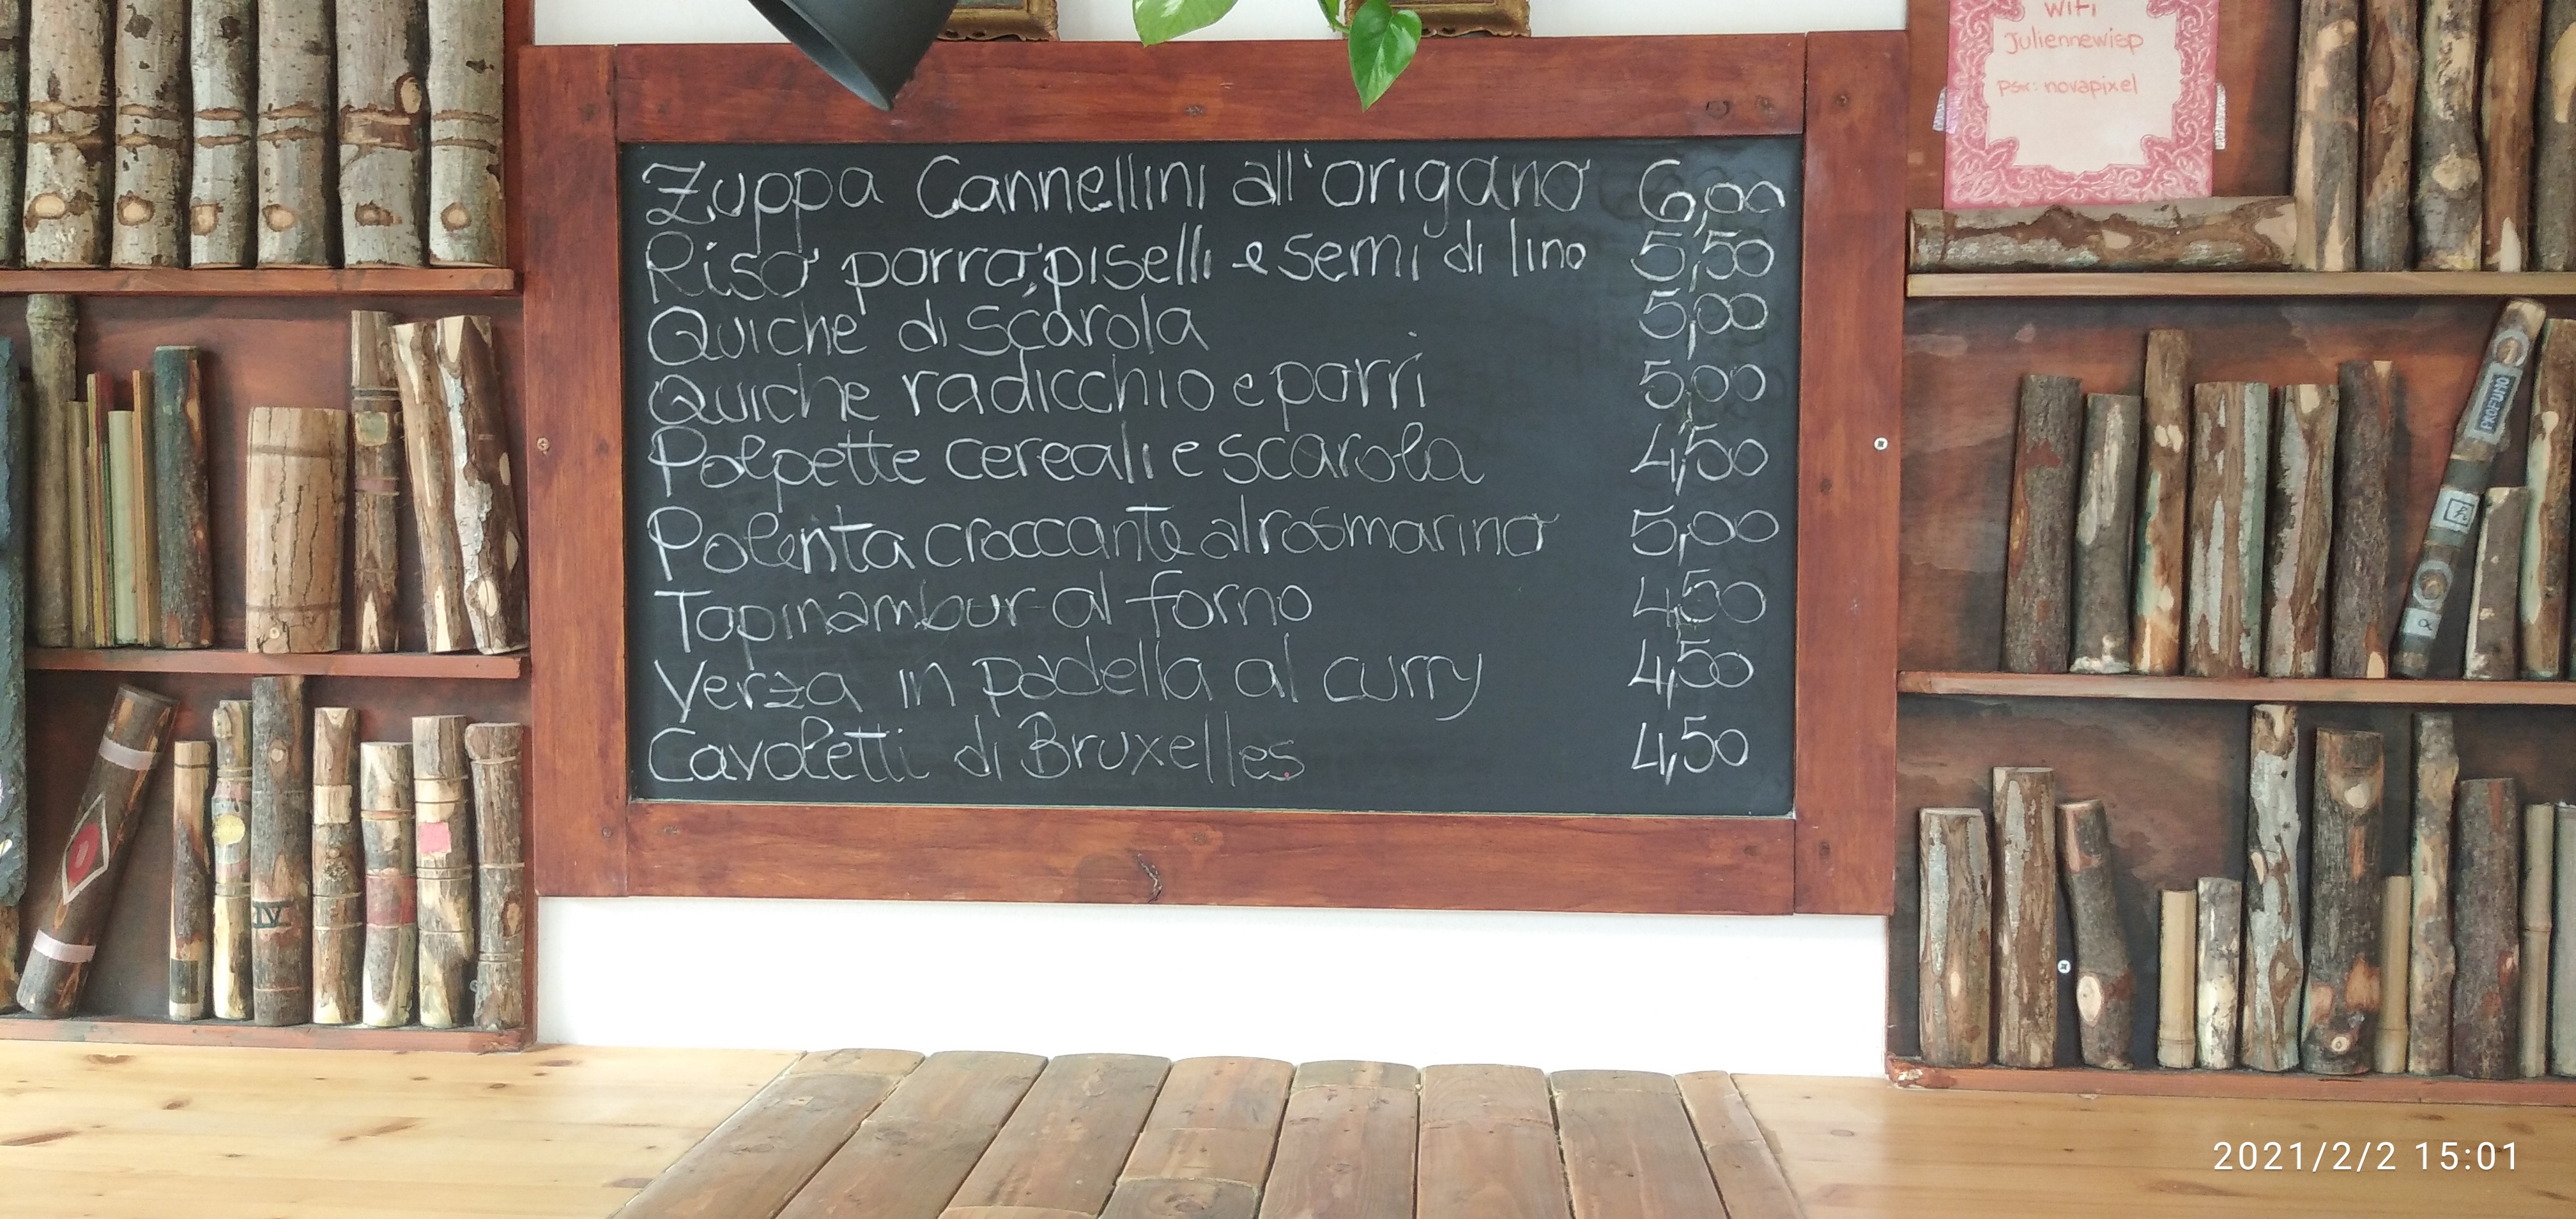 wifi
Juliennewisp
psw: novapixel
Zuppa Cannellini all'origano 6,00
Riso porro, piselli e semi di lino 5,50
Quiche di scarola 5,00
Quiche radicchio e porri 5,00
Polpette cereali e scarola 4,50
Polenta croccante al rosmarino 5,00
Topinambur al forno 4,50
Verza in padella al curry 4,50
Cavoletti di Bruxelles 4,50
PROFUMO
IV
2021/2/2 15:01